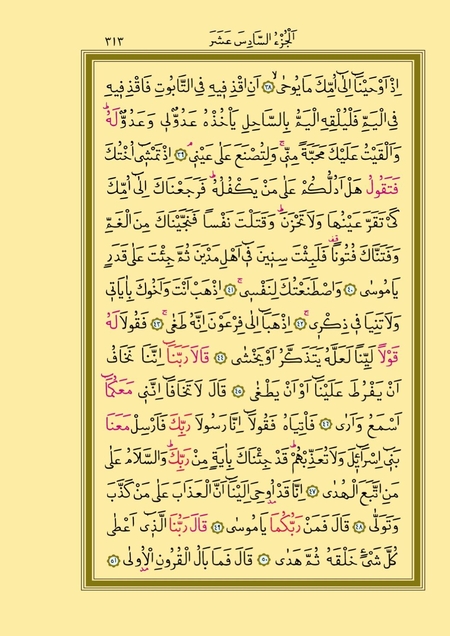 اَلْجُزْءُ السَّادِسَ عَشَرَ
٣١٣
اِذْ اَوْحَيْنَٓا اِلٰٓى اُمِّكَ مَا يُوحٰىۙ ﴿٣٨﴾ اَنِ اقْذِفِيهِ فِي التَّابُوتِ فَاقْذِفِيهِ
فِي الْيَمِّ فَلْيُلْقِهِ الْيَمُّ بِالسَّاحِلِ يَأْخُذْهُ عَدُوٌّ لٖي وَعَدُوٌّ لَهُۜ
وَاَلْقَيْتُ عَلَيْكَ مَحَبَّةً مِنّٖيۚ وَلِتُصْنَعَ عَلٰى عَيْنٖيۘ ﴿٣٩﴾ اِذْ تَمْشٖٓي اُخْتُكَ
فَتَقُولُ هَلْ اَدُلُّكُمْ عَلٰى مَنْ يَكْفُلُهُۜ فَرَجَعْنَاكَ اِلٰٓى اُمِّكَ
كَيْ تَقَرَّ عَيْنُهَا وَلَا تَحْزَنَۜ وَقَتَلْتَ نَفْسًا فَنَجَّيْنَاكَ مِنَ الْغَمِّ
وَفَتَنَّاكَ فُتُونًا۠ فَلَبِثْتَ سِنٖينَ فٖٓي اَهْلِ مَدْيَنَ ثُمَّ جِئْتَ عَلٰى قَدَرٍ
يَا مُوسٰى ﴿٤٠﴾ وَاصْطَنَعْتُكَ لِنَفْسٖيۚ ﴿٤١﴾ اِذْهَبْ اَنْتَ وَاَخُوكَ بِاٰيَاتٖي
وَلَا تَنِيَا فٖي ذِكْرٖيۚ ﴿٤٢﴾ اِذْهَبَٓا اِلٰى فِرْعَوْنَ اِنَّهُ طَغٰىۚ ﴿٤٣﴾ فَقُولَا لَهُ
قَوْلًا لَيِّنًا لَعَلَّهُ يَتَذَكَّرُ اَوْ يَخْشٰى ﴿٤٤﴾ قَالَا رَبَّنَٓا اِنَّنَا نَخَافُ
اَنْ يَفْرُطَ عَلَيْنَٓا اَوْ اَنْ يَطْغٰى ﴿٤٥﴾ قَالَ لَا تَخَافَٓا اِنَّنٖي مَعَكُمَٓا
اَسْمَعُ وَاَرٰى ﴿٤٦﴾ فَأْتِيَاهُ فَقُولَٓا اِنَّا رَسُولَا رَبِّكَ فَاَرْسِلْ مَعَنَا
بَنٖٓي اِسْرَٓائٖلَ وَلَا تُعَذِّبْهُمْۜ قَدْ جِئْنَاكَ بِاٰيَةٍ مِنْ رَبِّكَۜ وَالسَّلَامُ عَلٰى
مَنِ اتَّبَعَ الْهُدٰى ﴿٤٧﴾ اِنَّا قَدْ اُو۫حِيَ اِلَيْنَٓا اَنَّ الْعَذَابَ عَلٰى مَنْ كَذَّبَ
وَتَوَلّٰى ﴿٤٨﴾ قَالَ فَمَنْ رَبُّكُمَا يَا مُوسٰى ﴿٤٩﴾ قَالَ رَبُّنَا الَّذٖٓي اَعْطٰى
كُلَّ شَيْءٍ خَلْقَهُ ثُمَّ هَدٰى ﴿٥٠﴾ قَالَ فَمَا بَالُ الْقُرُونِ الْاُو۫لٰى ﴿٥١﴾